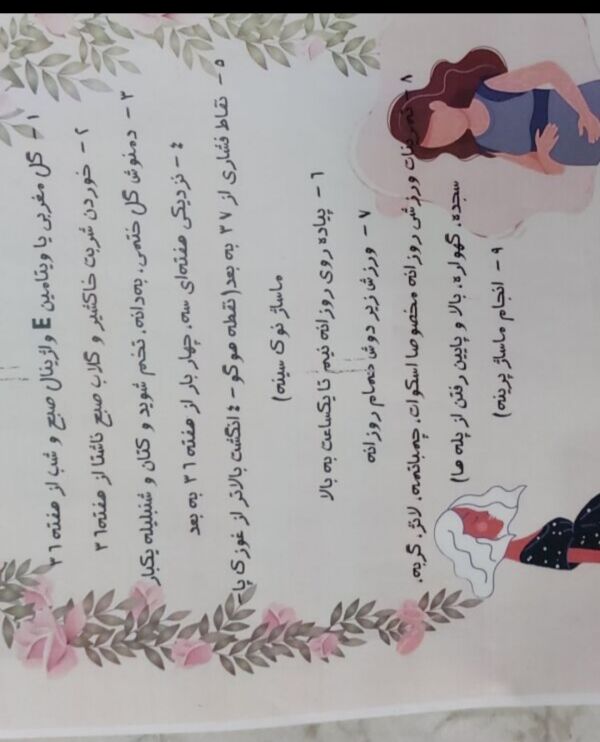 ۱- گل مغربی یا ویتامین E واژینال صبح و شب از هفته ۳۶
۲- خوردن شربت خاکشیر و گلاب صبح ناشتا از هفته ۳۶
۳- دمنوش گل ختمی، به دانه، تخم شوید و کتان و شنبلیله یکبار
۴- نزدیکی هفته‌ای سه، چهار بار از هفته ۳۶ به بعد
۵- نقاط فشاری از ۳۷ به بعد (نقطه هوگو - ۴ انگشت بالاتر از غوزک پا -
ماساژ نوک سینه)
۶- پیاده روی روزانه نیم تا یکساعت به بالا
۷- ورزش زیر دوش حمام روزانه
۸- تمرینات ورزشی روزانه مخصوصا اسکوات، چمباتمه، لانژ، گربه،
سجده، گهواره، بالا و پایین رفتن از پله ها)
۹- انجام ماساژ پرینه)